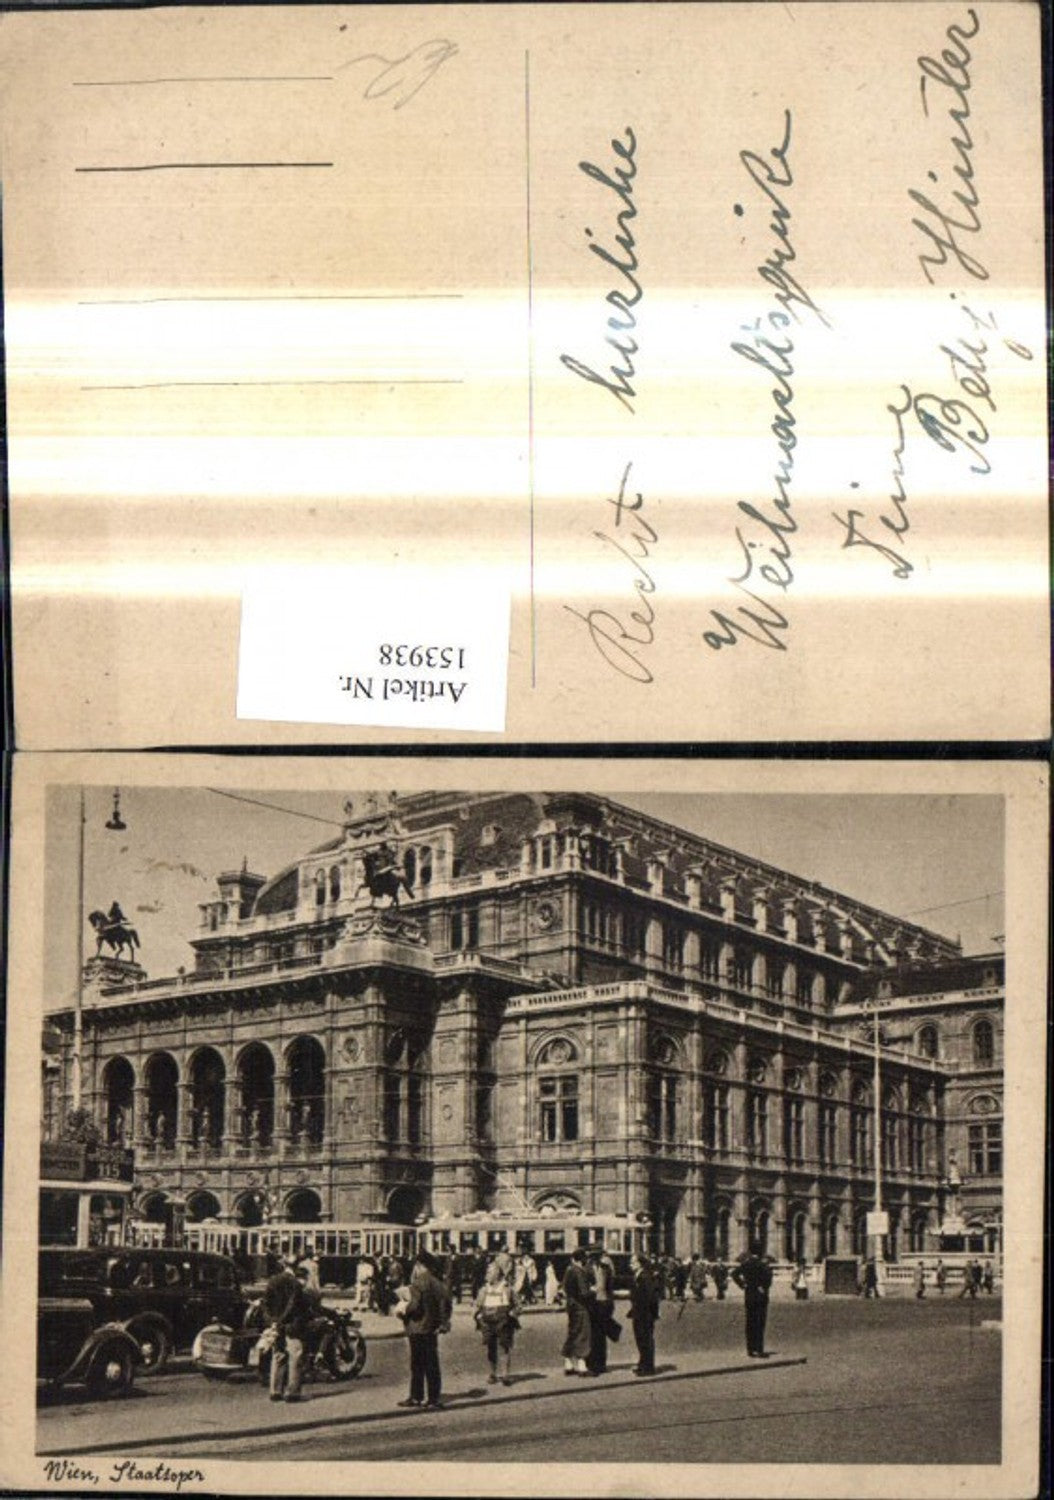 Recht herzliche
Weihnachtsgrüße
Deine
Betzi Himler
Artikel Nr.
153938
115
Wien, Staatsoper